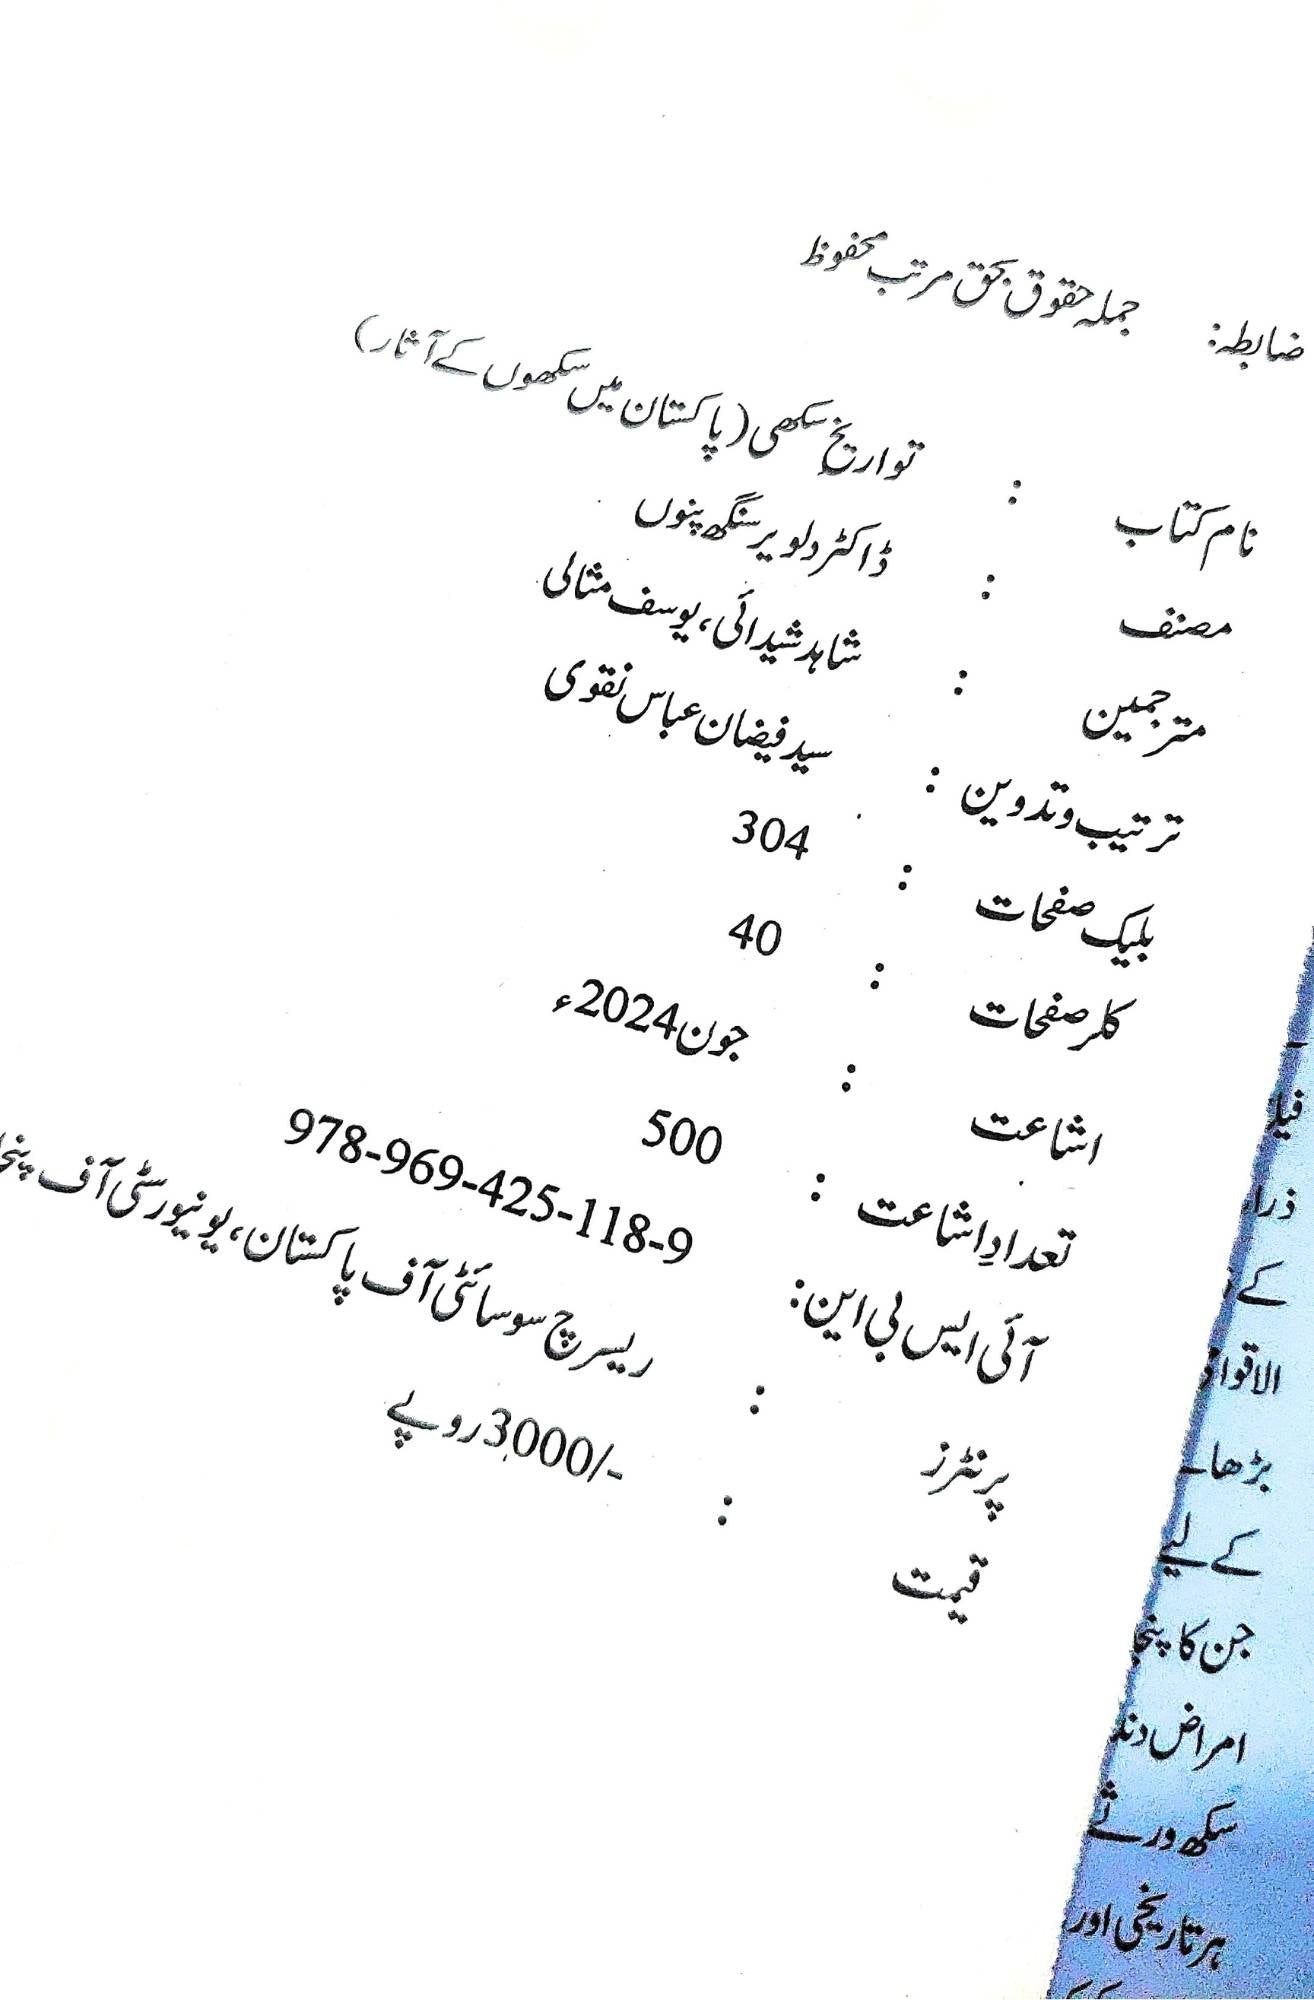 ضابطہ: جملہ حقوق بحق مرتب محفوظ
نام کتاب : تواریخ سکھی (پاکستان میں سکھوں کے آثار)
مصنف : ڈاکٹر دلویر سنگھ پنوں
مترجمین : شاہد شیدائی، یوسف مثالی
ترتیب و تدوین : سید فیضان عباس نقوی
بلیک صفحات : 304
کلر صفحات : 40
اشاعت : جون 2024ء
تعدادِ اشاعت : 500
آئی ایس بی این: 978-969-425-118-9
پرنٹرز : ریسرچ سوسائٹی آف پاکستان، یونیورسٹی آف
قیمت : 3000/- روپے
کے
بڑھا
کے لیے
جن کا
امراض
سکھ ورثے
ہر تاریخی اور